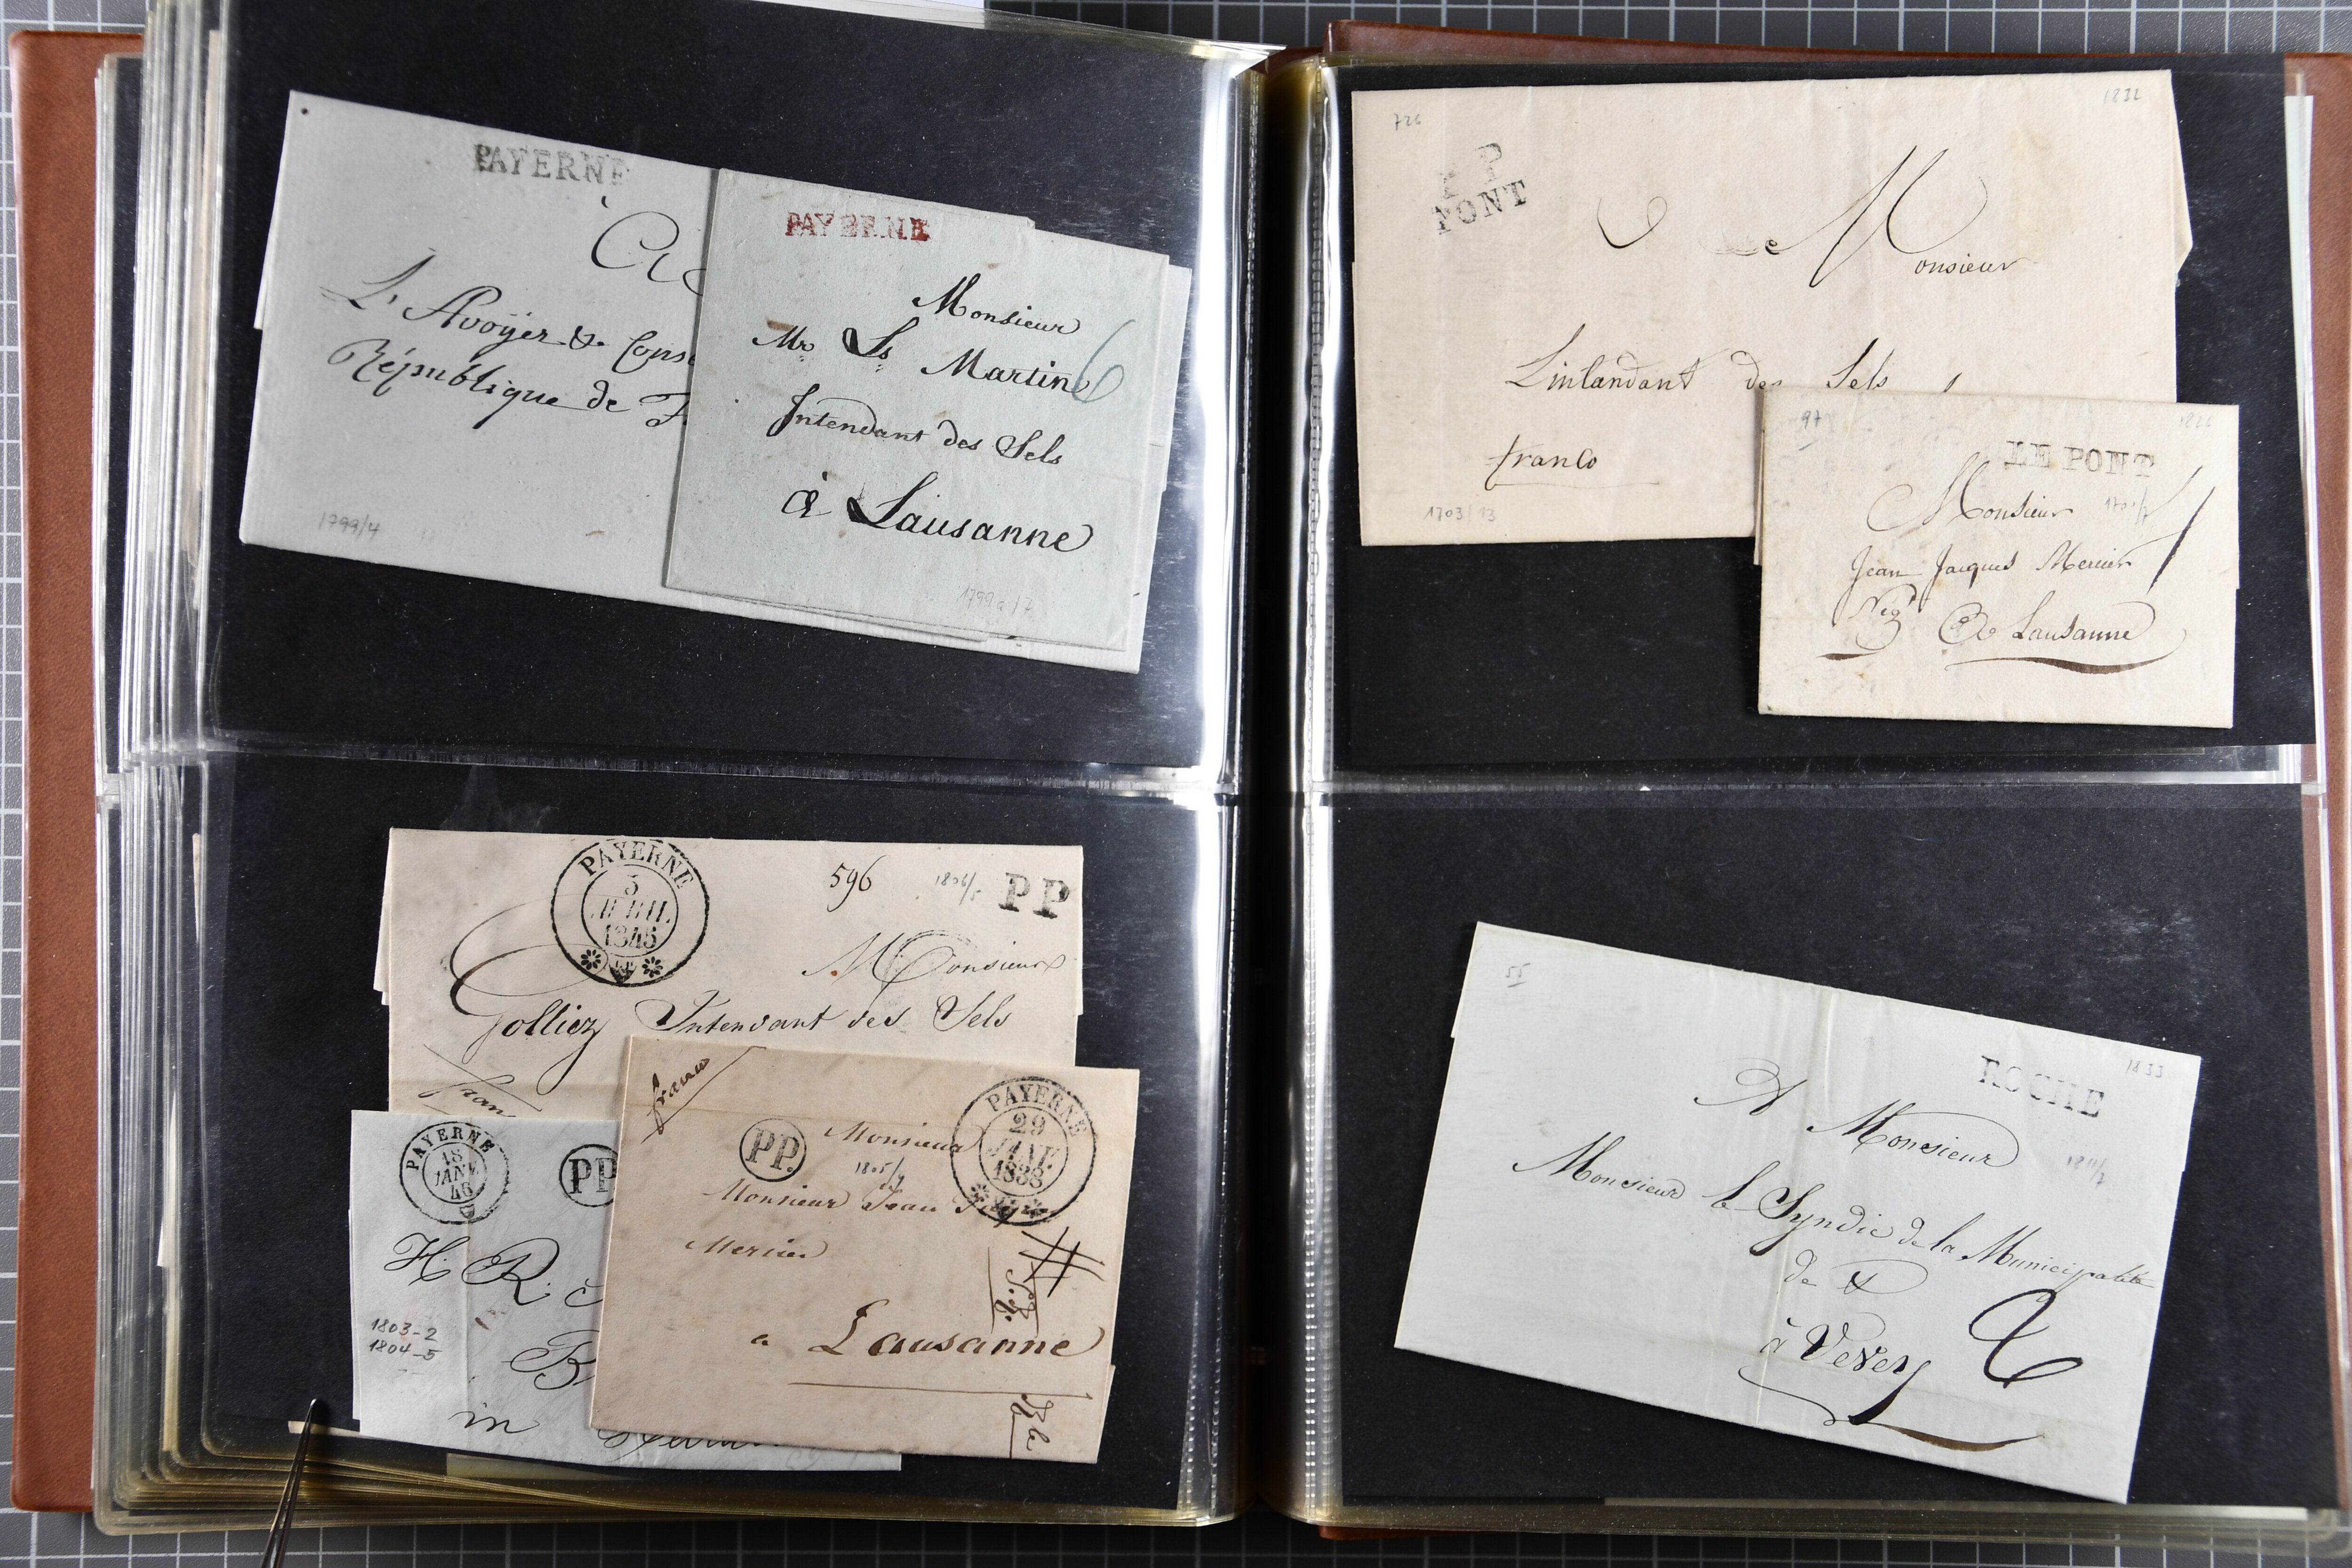 PAYERNE
L'Avoÿer & Cons
République de F
1799/4
PAYERNE
Monsieur
Mr Ls Martin
6
Intendant des Sels
à Lausanne
1799a/7
PAYERNE
3
AVRIL
1845
596
1806/5
PP
Monsieur
Golliez Intendant des Sels
fran
PAYERNE
18
JANV
46
PP
H. R.
1803-2
1804-5
B
in
franco
PP.
PAYERNE
29
JANV.
1838
Monsieur
1805/7
Monsieur Jean
Mercier
a Lausanne
726
1832
P P
PONT
Monsieur
Linlandant des Sels
franco
1703/13
97
LE PONT
Monsieur
Jean Jacques Mercier
Negt
A Lausanne
1833
ROCHE
A Monsieur
1811/7
Monsieur le Syndic de la Municipalité
de &
à Vevey